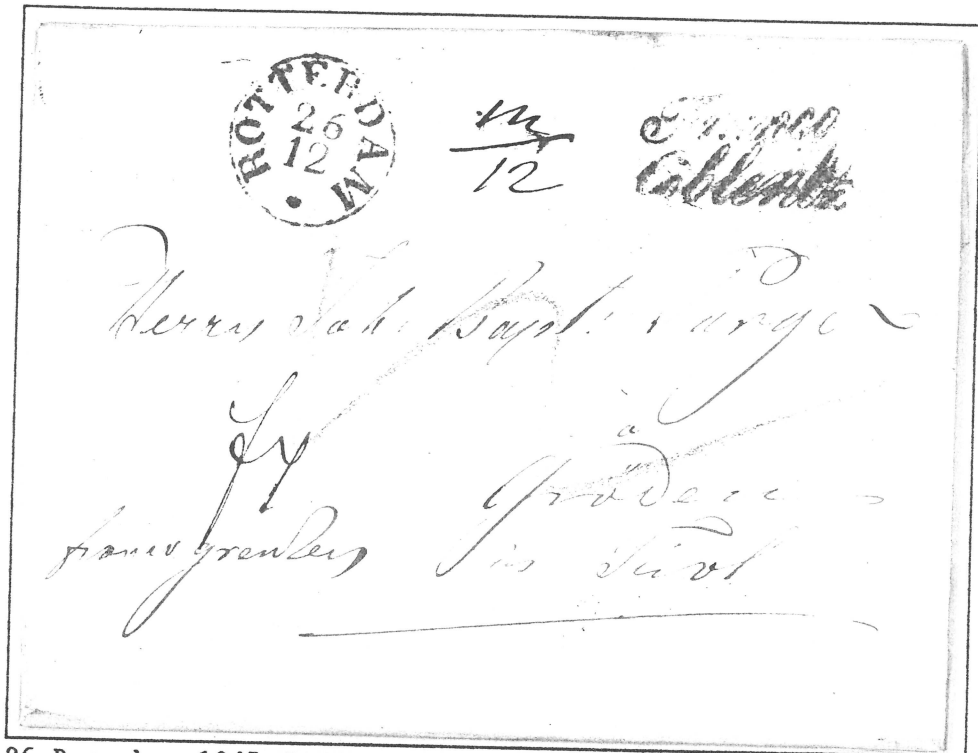 ROTTERDAM
26
12
12
Franco
Coblentz
Herrn Joh. Bapt.
à
Gröden
franco grenzen in Tirol
26 December